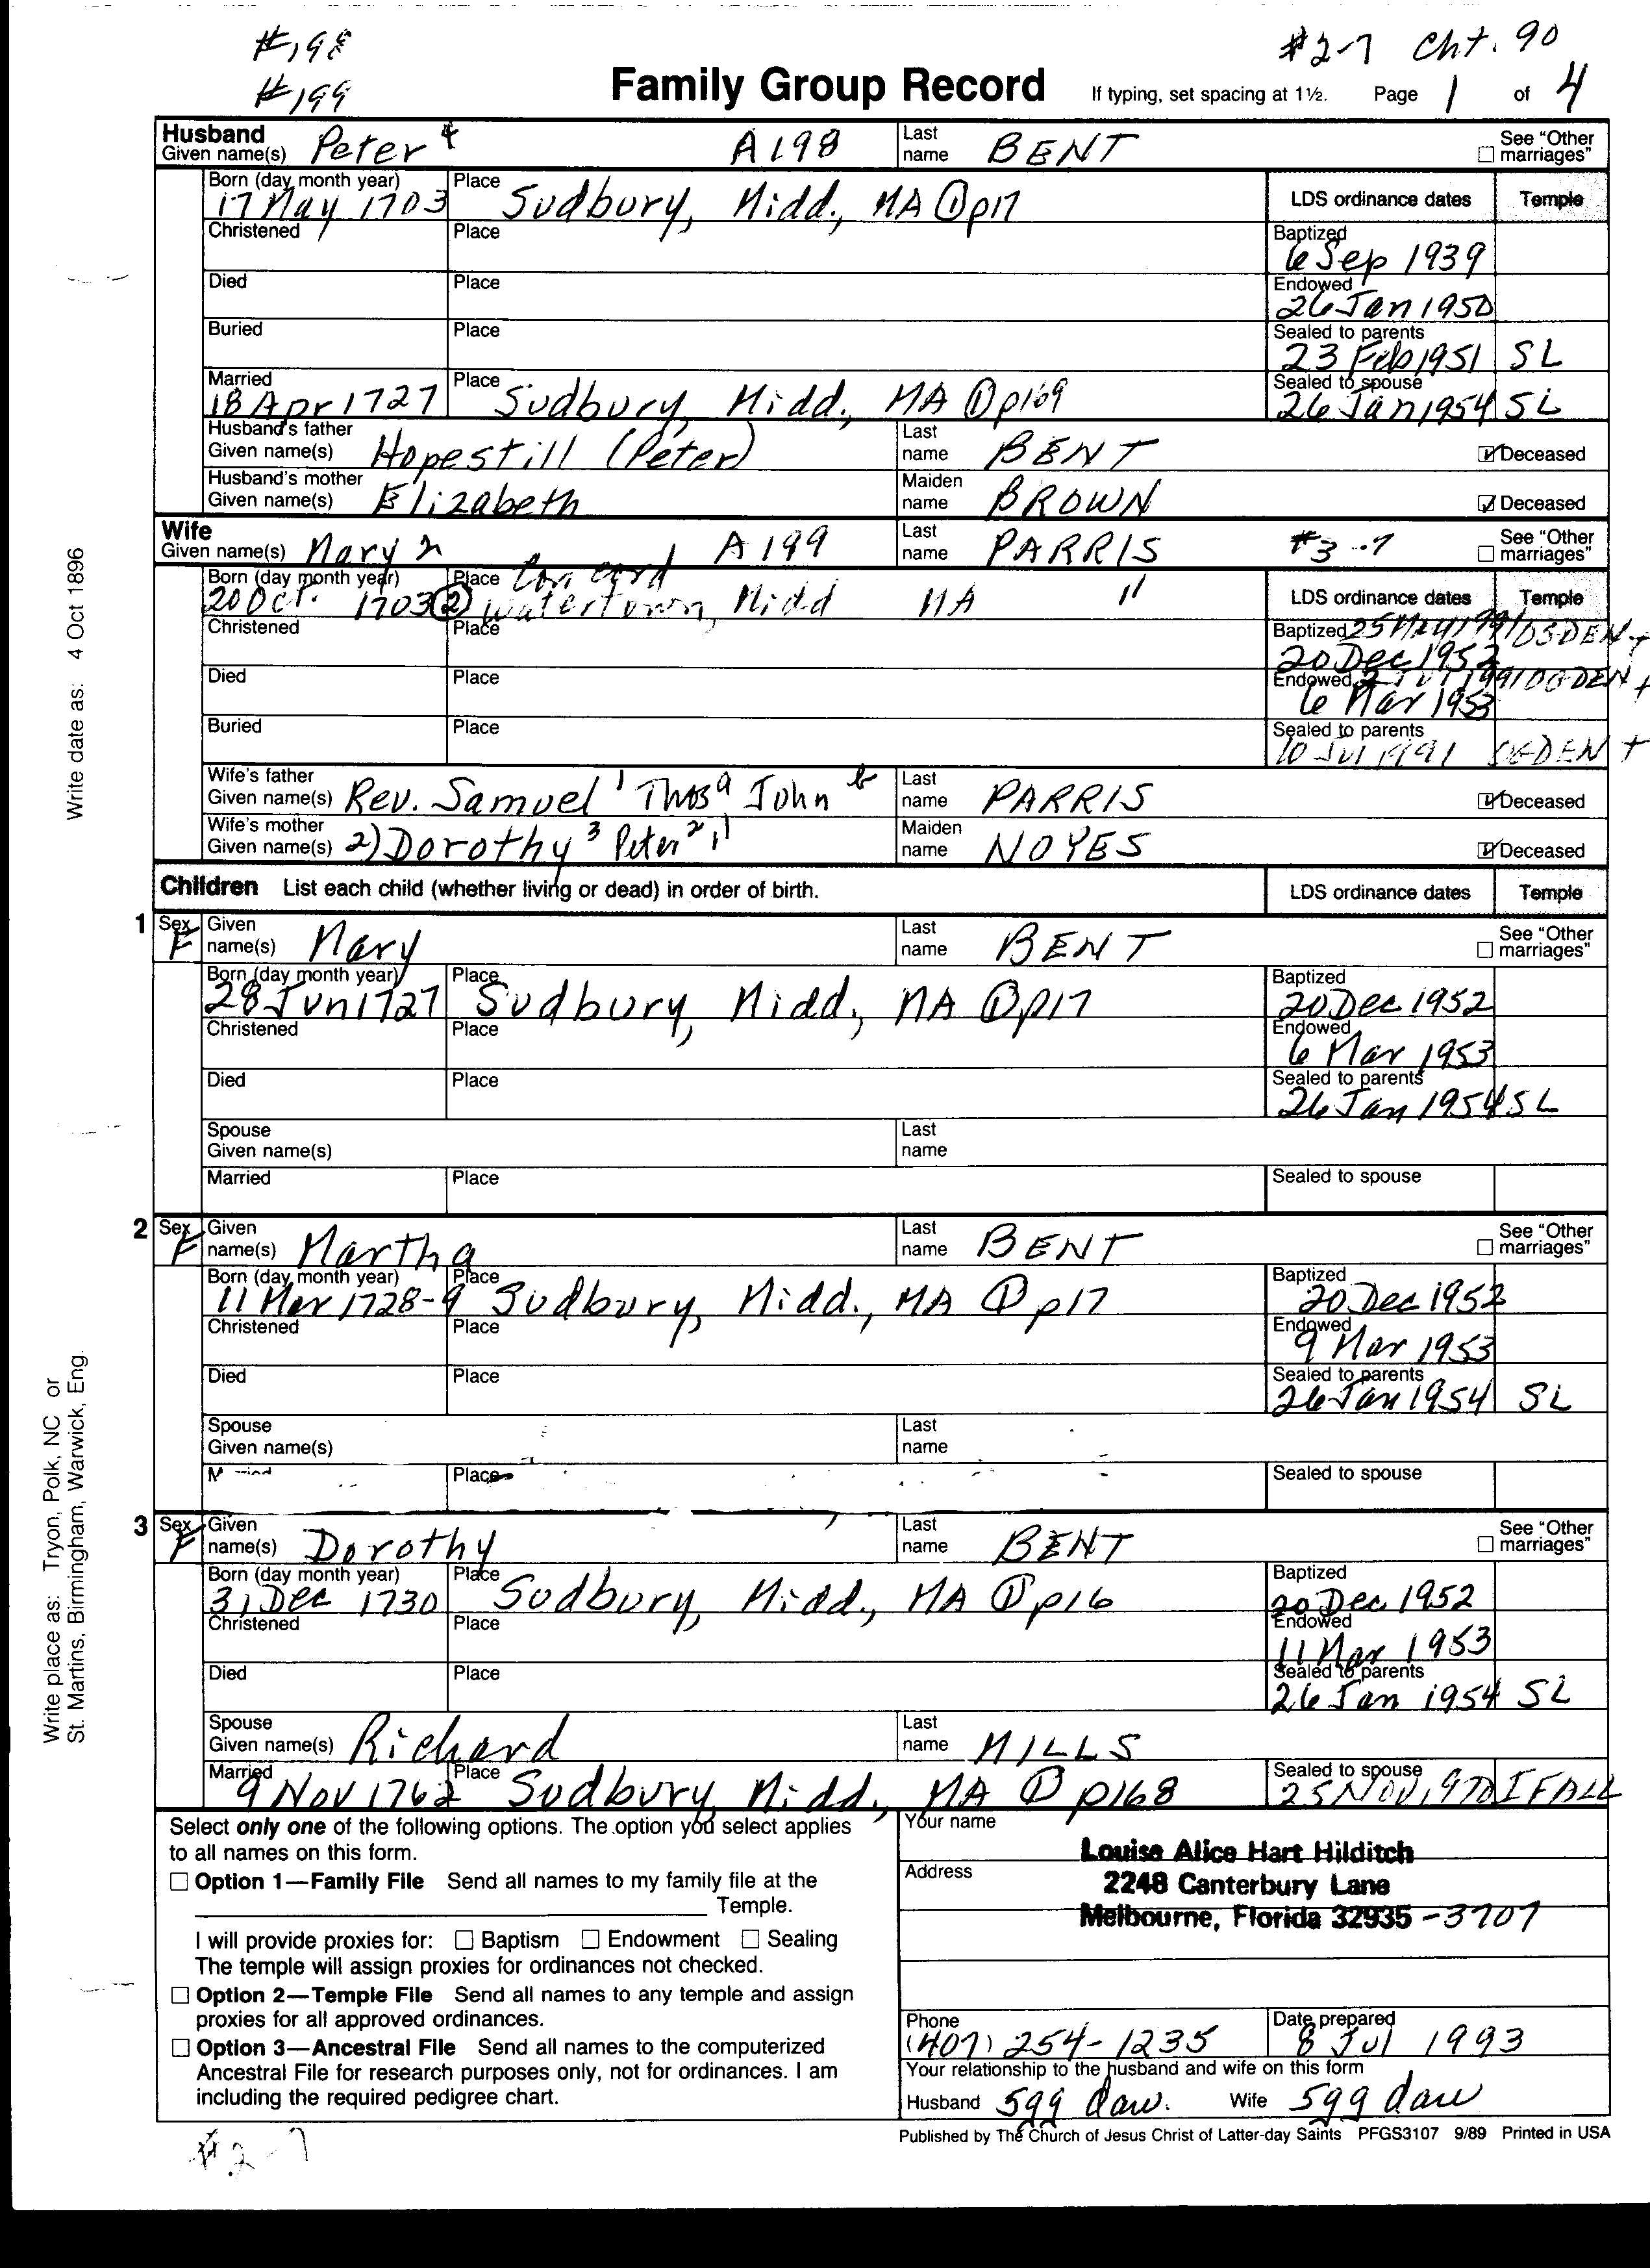 #198 #2-7 Cht. 90
#199 Family Group Record If typing, set spacing at 1½. Page 1 of 4
Husband
Given name(s) Peter 4 A198 Last name BENT See "Other marriages"
Born (day month year) 17 May 1703 Place Sudbury, Midd., MA ① p17 LDS ordinance dates Temple
Christened Place Baptized 6 Sep 1939
Died Place Endowed 26 Jan 1950
Buried Place Sealed to parents 23 Feb 1951 SL
Married 18 Apr 1727 Place Sudbury, Midd., MA ① p169 Sealed to spouse 26 Jan 1954 SL
Husband's father Given name(s) Hopestill (Peter) Last name BENT Deceased
Husband's mother Given name(s) Elizabeth Maiden name BROWN Deceased
Wife
Given name(s) Mary 2 A199 Last name PARRIS #3-7 See "Other marriages"
Born (day month year) 20 Oct. 1703 ② Place Concord Watertown, Midd MA " LDS ordinance dates Temple
Christened Place Baptized 25 May 1991 OGDEN +
20 Dec 1952
Died Place Endowed 2 Jul 1991 OGDEN +
6 Mar 1953
Buried Place Sealed to parents 10 Jul 1991 OGDEN +
Wife's father Given name(s) Rev. Samuel 1 Thos a John b Last name PARRIS Deceased
Wife's mother Given name(s) 2) Dorothy 3 Peter 2, 1 Maiden name NOYES Deceased
Children List each child (whether living or dead) in order of birth. LDS ordinance dates Temple
1 Sex F Given name(s) Mary Last name BENT See "Other marriages"
Born (day month year) 28 Jun 1727 Place Sudbury, Midd., MA ① p17 Baptized 20 Dec 1952
Christened Place Endowed 6 Mar 1953
Died Place Sealed to parents 26 Jan 1954 SL
Spouse Given name(s) Last name
Married Place Sealed to spouse
2 Sex F Given name(s) Martha Last name BENT See "Other marriages"
Born (day month year) 11 Mar 1728-9 Place Sudbury, Midd., MA ① p17 Baptized 20 Dec 1952
Christened Place Endowed 9 Mar 1953
Died Place Sealed to parents 26 Jan 1954 SL
Spouse Given name(s) Last name
Married Place Sealed to spouse
3 Sex F Given name(s) Dorothy Last name BENT See "Other marriages"
Born (day month year) 31 Dec 1730 Place Sudbury, Midd., MA ① p16 Baptized 20 Dec 1952
Christened Place Endowed 11 Mar 1953
Died Place Sealed to parents 26 Jan 1954 SL
Spouse Given name(s) Richard Last name MILLS
Married 9 Nov 1762 Place Sudbury, Midd., MA ① p168 Sealed to spouse 25 NOV 1970 IFALL
Select only one of the following options. The option you select applies
to all names on this form.
Option 1—Family File Send all names to my family file at the
Temple.
I will provide proxies for: Baptism Endowment Sealing
The temple will assign proxies for ordinances not checked.
Option 2—Temple File Send all names to any temple and assign
proxies for all approved ordinances.
Option 3—Ancestral File Send all names to the computerized
Ancestral File for research purposes only, not for ordinances. I am
including the required pedigree chart.
Your name Louise Alice Hart Hilditch
Address 2248 Canterbury Lane
Melbourne, Florida 32935 -3707
Phone (407) 254-1235 Date prepared 8 Jul 1993
Your relationship to the husband and wife on this form
Husband 5gg dau. Wife 5gg dau
Published by The Church of Jesus Christ of Latter-day Saints PFGS3107 9/89 Printed in USA
#2-7
Write date as: 4 Oct 1896
Write place as: Tryon, Polk, NC or
St. Martins, Birmingham, Warwick, Eng.